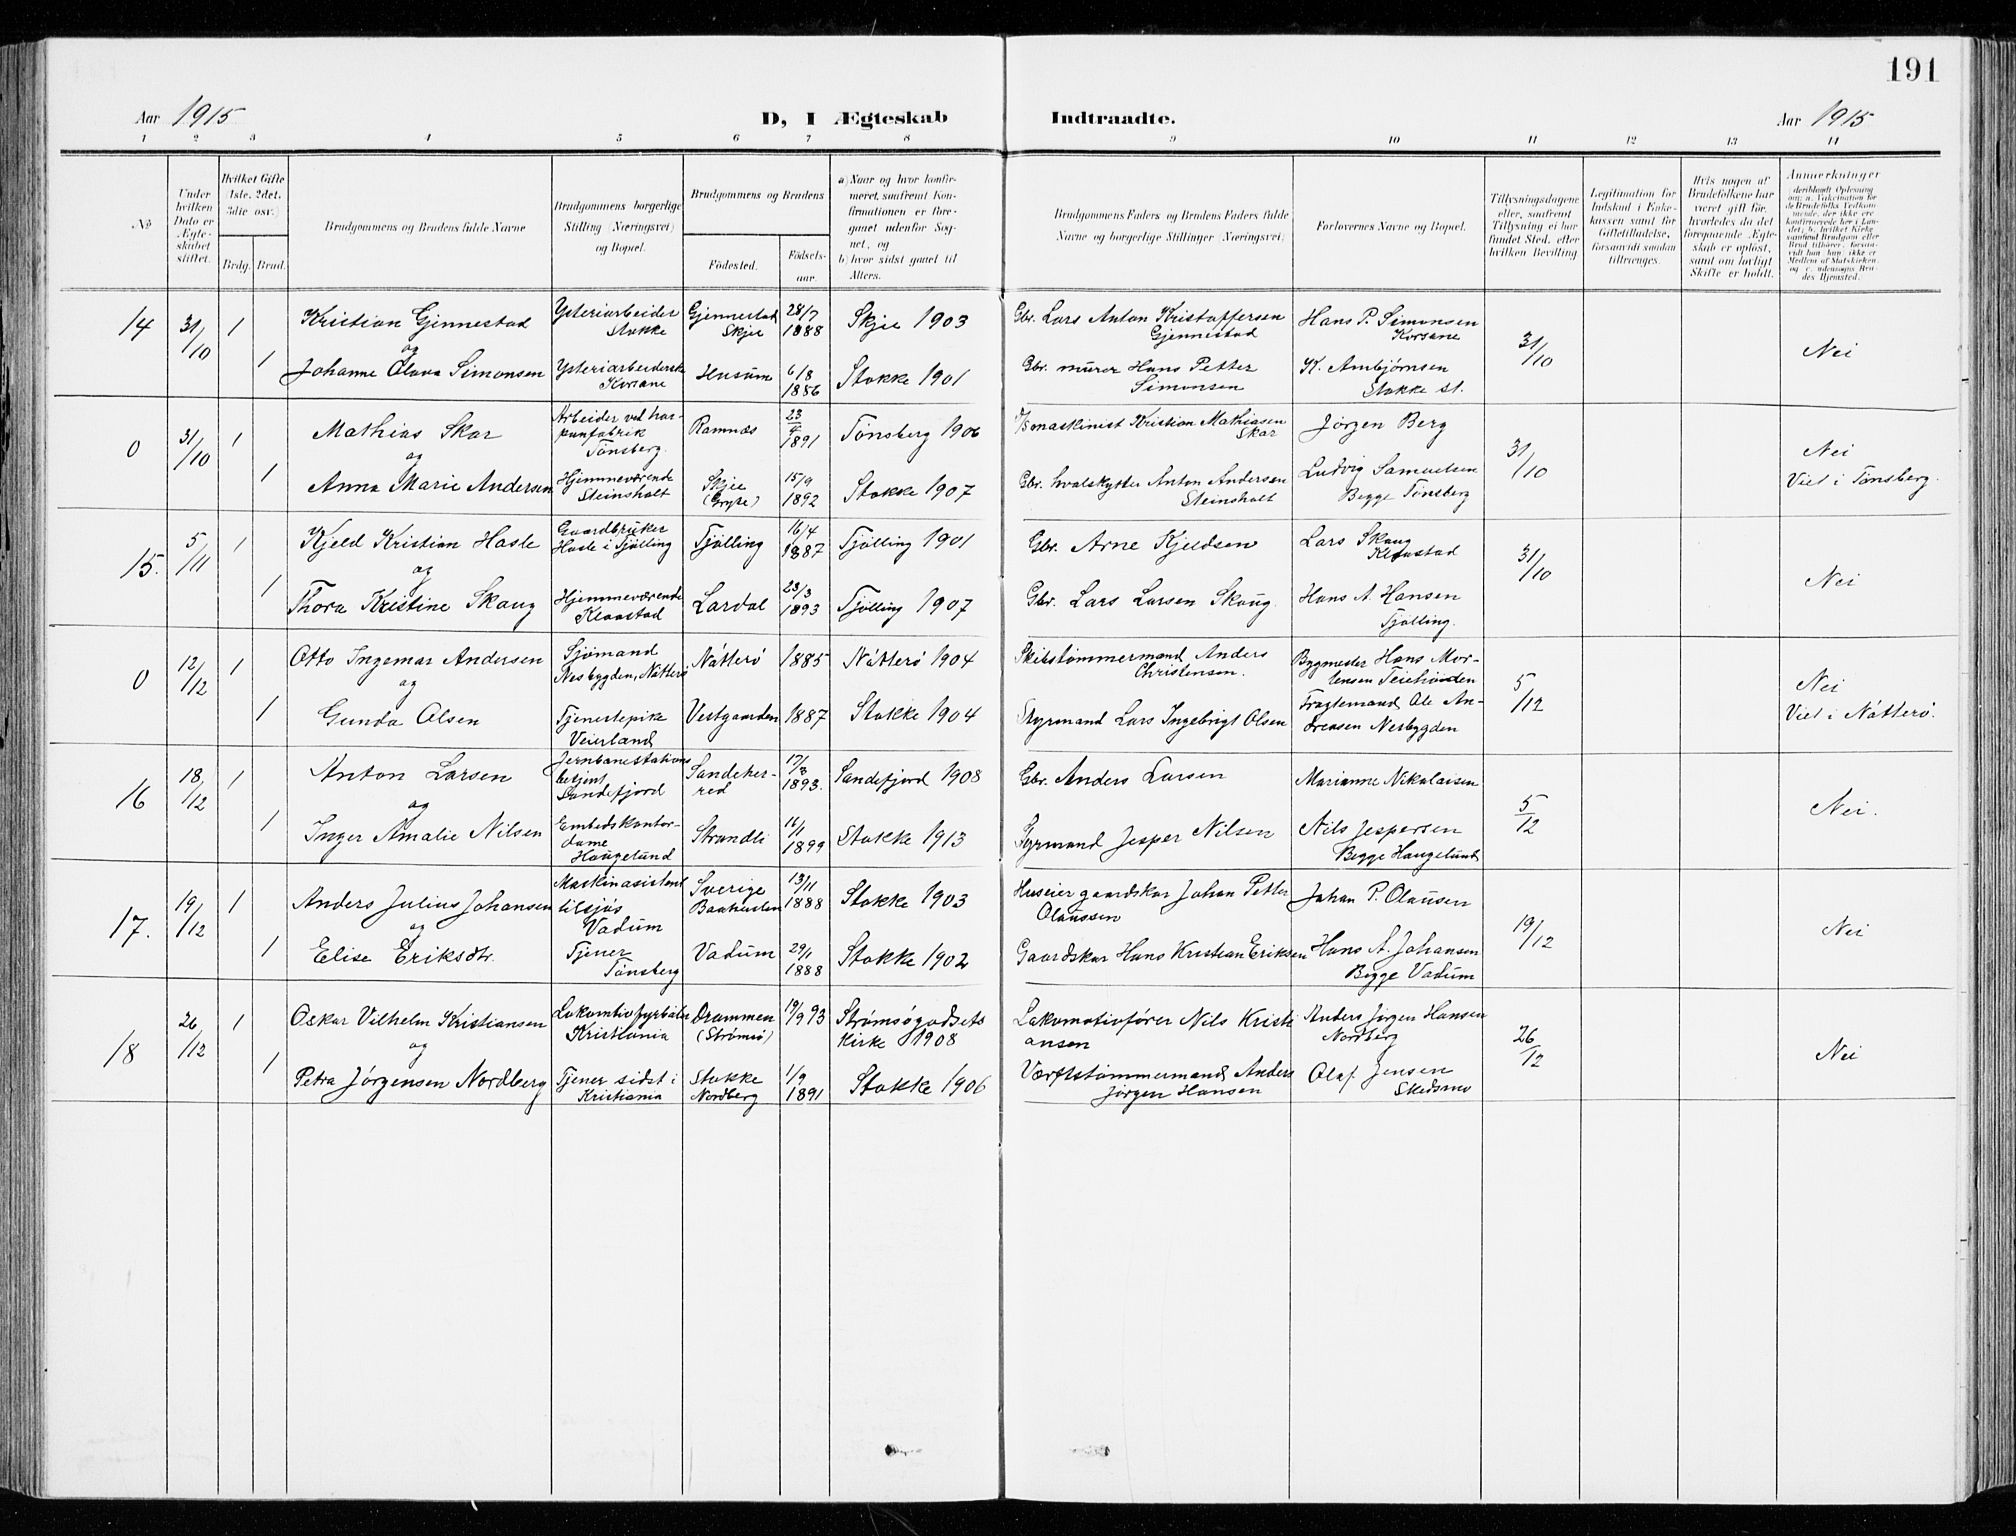 191
Aar 1915
D, I Ægteskab
Indtraadte.
Aar 1915
1 2 3 4 5 6 7 8 9 10 11 12 13 14
No
Under hvilken Dato er Ægteskabet stiftet.
Hvilket Gifte (1ste, 2det, 3die osv.)
Brdg. Brud.
Brudgommens og Brudens fulde Navne
Brudgommens borgerlige Stilling (Næringsvei) og Bopæl.
Brudgommens og Brudens
Fødested.
Fødselsaar.
a) Naar og hvor konfirmeret, samfremt Konfirmationen er foregaaet udenfor Sognet, og
b) hvor sidst gaaet til Alters.
Brudgommens Faders og Brudens Faders fulde Navne og borgerlige Stillinger (Næringsvei)
Forlovernes Navne og Bopæl.
Tillysningsdagene eller, samfremt Tillysning ei har fundet Sted, efter hvilken Bevilling.
Legitimation for Indskud i Enkekassen samt for Giftetilladelse, forsaavidt saadan tiltrænges.
Hvis nogen af Brudefolkene har været gift før, hvorledes da det foregaaende Ægteskab er opløst, samt om lovligt Skifte er holdt.
Anmerkninger
14 31/10 1 Kristian Gjennestad
Ysteriarbeider Stokke
Gjennestad Skjee
28/7 1888
Skjee 1903
Gbr. Lars Anton Kristoffersen Gjennestad
Hans P. Simonsen Korsane
31/10
Nei
og
1 Johanne Olava Simonsen
Ysteriarbeiderske Korsane
Husum
6/8 1886
Stokke 1901
Gbr. murer Hans Petter Simonsen
K. Ambjørnsen Stokke st.
0 31/10 1 Mathias Skar
Arbeider ved harpunfabrik Tønsberg.
Ramnæs
23/4 1891
Tønsberg 1906
maskinist Kristian Mathiasen Skar
Jørgen Berg
31/10
Nei
Viet i Tønsberg.
og
1 Anna Marie Andersen
Hjemmeværende Steinsholt
Skjee
15/9 1892
Stokke 1907
Gbr. hvalskytter Anton Andersen Steinsholt
Ludvig Samuelsen
Begge Tønsberg
15. 5/11 1 Kjeld Kristian Hasle
Gaardbruker Hasle i Tjølling
Tjølling
16/4 1887
Tjølling 1901
Gbr. Arne Kjeldsen
Lars Skaug Klaastad
31/10
Nei
og
1 Thora Kristine Skaug
Hjemmeværende Klaastad
Lardal
23/3 1893
Tjølling 1907
Gbr. Lars Larsen Skaug.
Hans A. Hansen Tjølling.
0 12/12 1 Otto Ingemar Andersen
Sjømand Nesbygden, Nøtterø
Nøtterø
1885
Nøtterø 1904
Skibstømmermand Anders Christensen.
Bygmester Hans Mortensen
5/12
Nei
Viet i Nøtterø.
og
1 Gunda Olsen
Tjenestepike Veierland
Vestgaarden
1887
Stokke 1904
Styrmand Lars Ingebrigt Olsen
Fragtemand Ole Andreasen Nesbygden
16 18/12 1 Anton Larsen
Jernbanestations betjent Sandefjord
Sandeherred
17/3 1893.
Sandefjord 1908
Gbr. Anders Larsen
Marianne Nikolaisen
5/12
Nei.
og
1 Inger Amalie Nilsen
Embedskontordame Haugelund
Strandli
16/1 1899
Stokke 1913
Styrmand Jesper Nilsen
Nils Jespersen
Begge Haugelund
17. 19/12 1 Anders Julius Johansen
Maskinasistent tilsjøs Vadum
Sverige
13/11 1888
Stokke 1903
Huseier gaardskar Johan Petter Olaussen
Johan P. Olausen
19/12
Nei
og
1 Elise Eriksdtr.
Tjener Tønsberg
Vadum
29/1 1888
Stokke 1902
Gaardskar Hans Kristian Eriksen
Hans A. Johansen
Begge Vadum
18 26/12 1 Oskar Vilhelm Kristiansen
Kristiania
Drammen (Strømsø)
19/9 93
Strømsøgodsets Kirke 1908
Lokomotivfører Nils Kristiansen
Anders Jørgen Hansen Nordberg
26/12
Nei
og
1 Petra Jørgensen Nordberg
Tjener sidst i Kristiania
Stokke Nordberg
1/9 1891
Stokke 1906
Værftstømmermand Anders Jørgen Hansen
Olaf Jensen Skedsmo